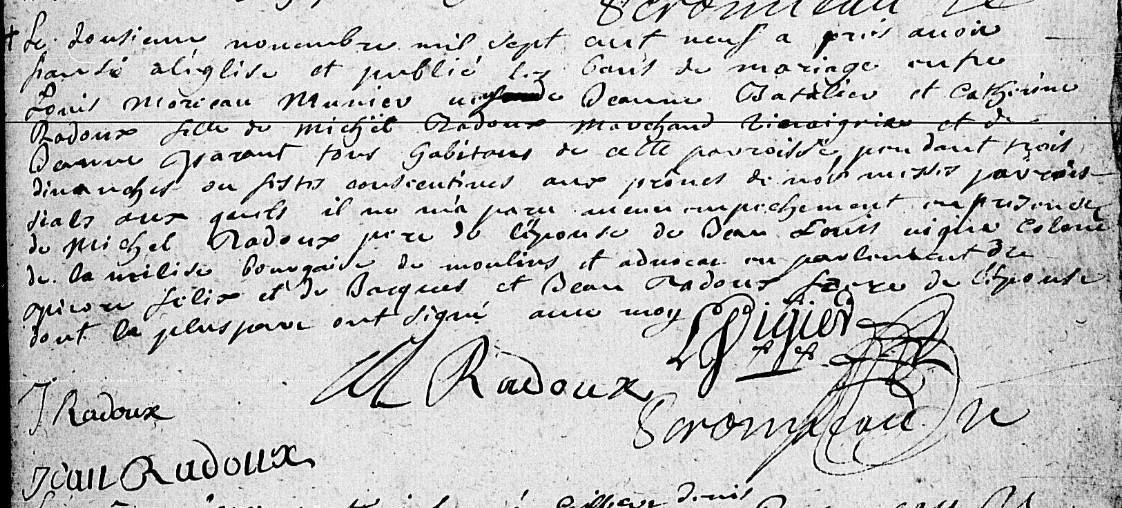 Le dousieme novembre mil sept cent neuf a prés avoir
fiancé a léglise et publié les bans de mariage entre
Louis Moreau Munier de Jeanne Batélier et Catherine
Radoux fille de Michel Radoux Marchand vinaigrier et de
Jeanne Garant tous habitans de cette parroisse, pendant trois
dimanches ou festes consecutives aux prônes de nos messes parrois-
sials aux quels il ne m'a paru aucun empechement en presence
de Michel Radoux pere de lépouse de Jean Louis Colone
de la milise bourgoise de moulins et advocat en parlement de
félix et de Jacques et Jean Radoux frere de lépouse
dont la pluspart ont signé avec moy
Vigier
M Radoux
J Radoux
Jean Radoux